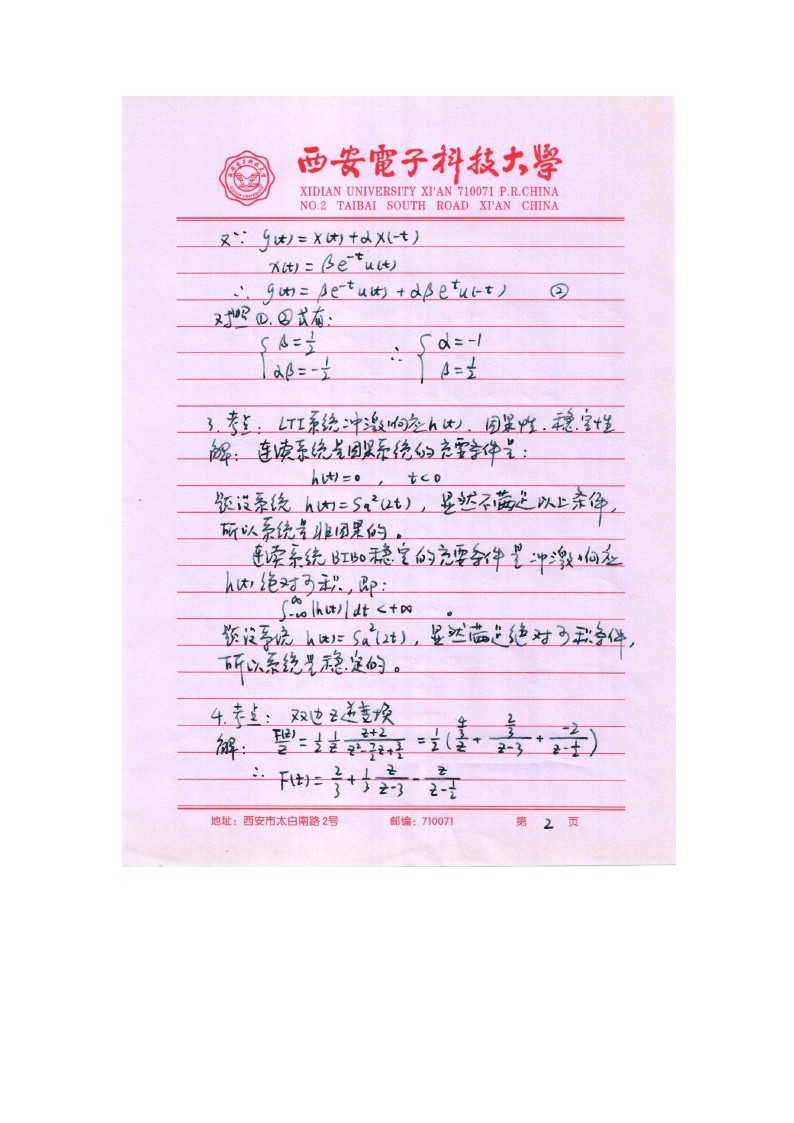 西安電子科技大學
XIDIAN UNIVERSITY XI'AN 710071 P.R.CHINA
NO.2 TAIBAI SOUTH ROAD XI'AN CHINA
又∵ g(t) = x(t) + αx(-t)
x(t) = βe^{-t}u(t)
∴ g(t) = βe^{-t}u(t) + αβe^{t}u(-t) ②
对照①、②式有:
{ β = 1/2 ∴ { α = -1
{ αβ = -1/2 { β = 1/2
3. 考点: LTI系统冲激响应h(t)、因果性、稳定性
解: 连续系统是因果系统的充要条件是:
h(t) = 0 , t<0
题设系统 h(t) = Sa²(2t), 显然不满足以上条件,
所以系统是非因果的。
连续系统BIBO稳定的充要条件是冲激响应
h(t)绝对可积, 即:
∫_{-∞}^{∞} |h(t)| dt < +∞ 。
题设系统 h(t) = Sa²(2t), 显然满足绝对可积条件,
所以系统是稳定的。
4. 考点: 双边Z逆变换
解: F(z)/z = 1/2 1/z (z+2)/(z²-7/2z+3/2) = 1/2 ( (4/3)/z + (2/3)/(z-3) + (-2)/(z-1/2) )
∴ F(z) = 2/3 + 1/3 z/(z-3) - z/(z-1/2)
地址: 西安市太白南路2号 邮编: 710071 第 2 页